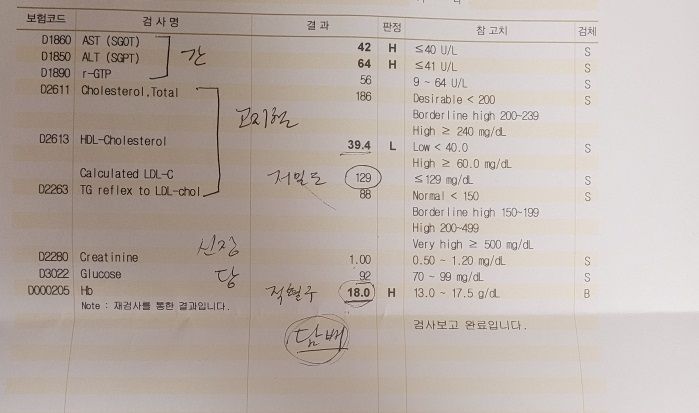 보험코드 검 사 명 결 과 판정 참 고치 검체
D1860 AST (SGOT) 42 H ≤40 U/L S
D1850 ALT (SGPT) 간 64 H ≤41 U/L S
D1890 r-GTP 56 9 ~ 64 U/L S
D2611 Cholesterol,Total 186 Desirable < 200 S
고지혈 Borderline high 200~239
High ≥ 240 mg/dL
D2613 HDL-Cholesterol 39.4 L Low < 40.0 S
High ≥ 60.0 mg/dL
Calculated LDL-C 저밀도 129 ≤129 mg/dL S
D2263 TG reflex to LDL-chol 88 Normal < 150 S
Borderline high 150~199
High 200~499
신장 Very high ≥ 500 mg/dL
D2280 Creatinine 1.00 0.50 ~ 1.20 mg/dL S
D3022 Glucose 당 92 70 ~ 99 mg/dL S
D000205 Hb 적혈구 18.0 H 13.0 ~ 17.5 g/dL B
Note : 재검사를 통한 결과입니다.
담배 검사보고 완료입니다.